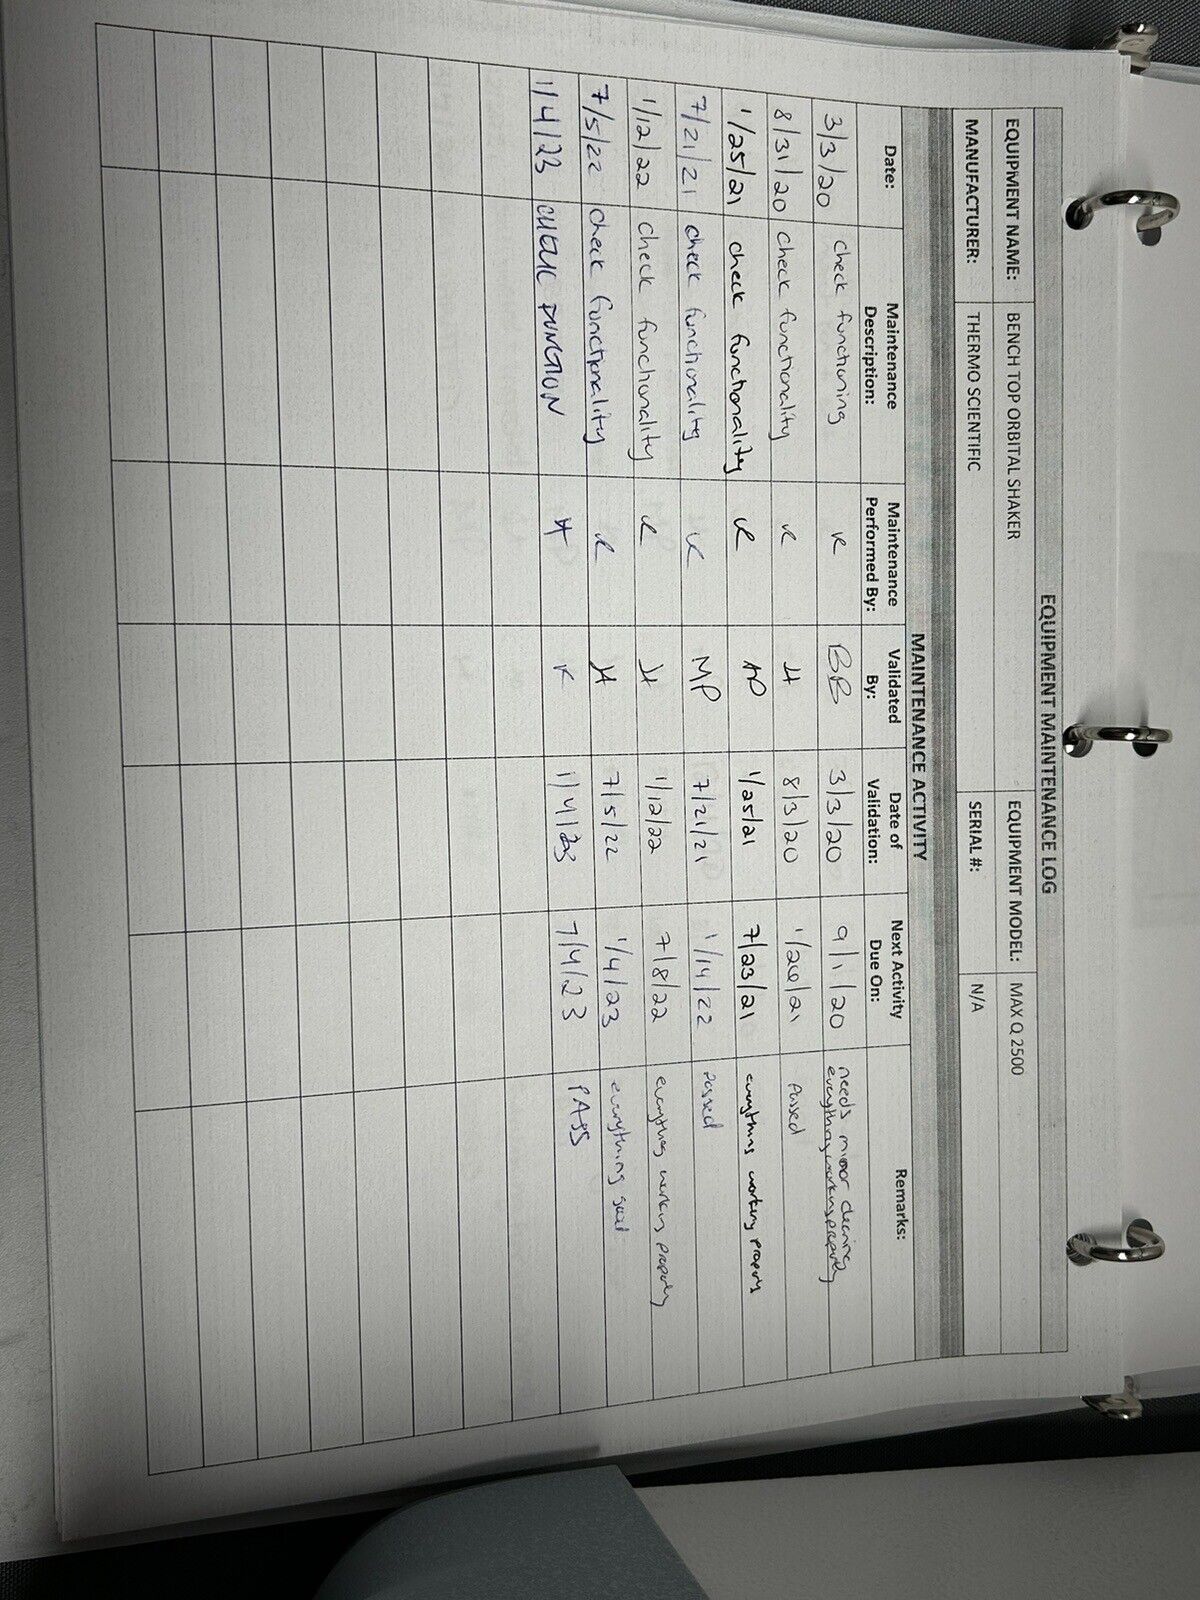 EQUIPMENT MAINTENANCE LOG
EQUIPMENT NAME: BENCH TOP ORBITAL SHAKER EQUIPMENT MODEL: MAX Q 2500
MANUFACTURER: THERMO SCIENTIFIC SERIAL #: N/A
MAINTENANCE ACTIVITY
Date: Maintenance Description: Maintenance Performed By: Validated By: Date of Validation: Next Activity Due On: Remarks:
3/3/20 check functioning K BB 3/3/20 9/1/20 needs minor cleaning everything working properly
8/31/20 check functionality K 8/3/20 1/26/21 passed
1/25/21 check functionality K AP 1/25/21 7/23/21 everything working properly
7/21/21 check functionality K MP 7/21/21 1/14/22 passed
1/12/22 check functionality K 1/12/22 7/8/22 everything working properly
7/5/22 check functionality K 7/5/22 1/4/23 everything good
1/4/23 CHECK FUNCTION K 1/4/23 7/4/23 PASS